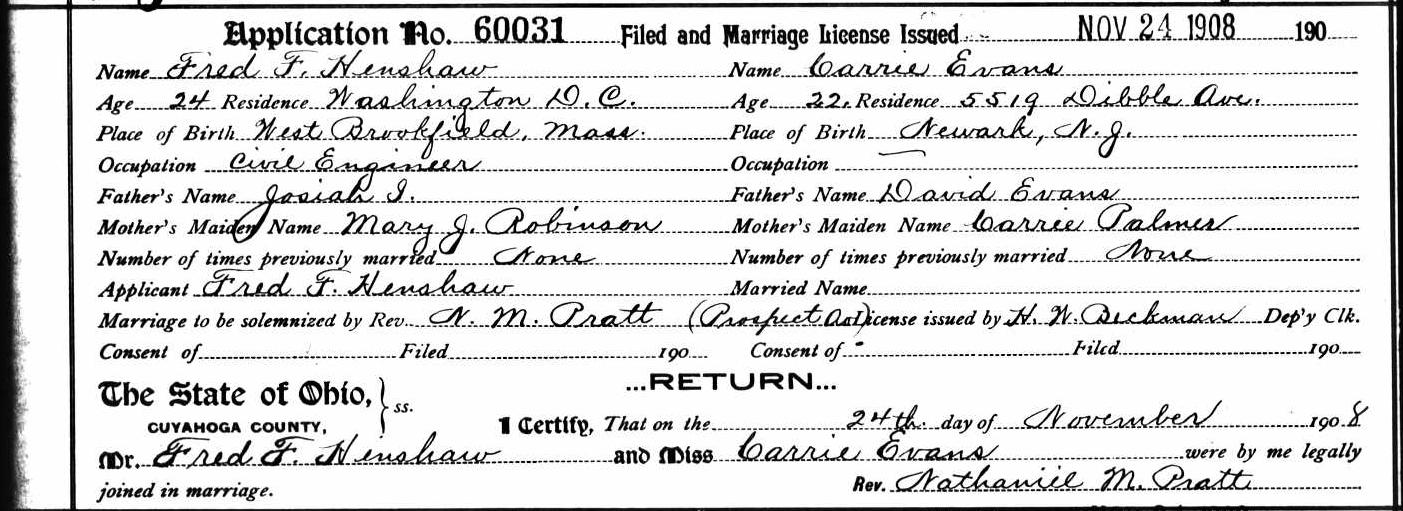 Application No. 60031 Filed and Marriage License Issued NOV 24 1908 190
Name Fred F. Henshaw Name Carrie Evans
Age 24 Residence Washington D.C. Age 22. Residence 5519 Dibble Ave.
Place of Birth West Brookfield, Mass. Place of Birth Newark, N.J.
Occupation Civil Engineer Occupation —
Father's Name Josiah I. Father's Name David Evans
Mother's Maiden Name Mary J. Robinson Mother's Maiden Name Carrie Palmer
Number of times previously married None Number of times previously married None
Applicant Fred F. Henshaw Married Name
Marriage to be solemnized by Rev. N. M. Pratt (Prospect License issued by H. W. Beckman Dep'y Clk.
Consent of Filed 190 Consent of Filed 190
...RETURN...
The State of Ohio, } ss.
CUYAHOGA COUNTY, I Certify, That on the 24th. day of November 1908
Mr. Fred F. Henshaw and Miss Carrie Evans were by me legally
joined in marriage. Rev. Nathaniel M. Pratt